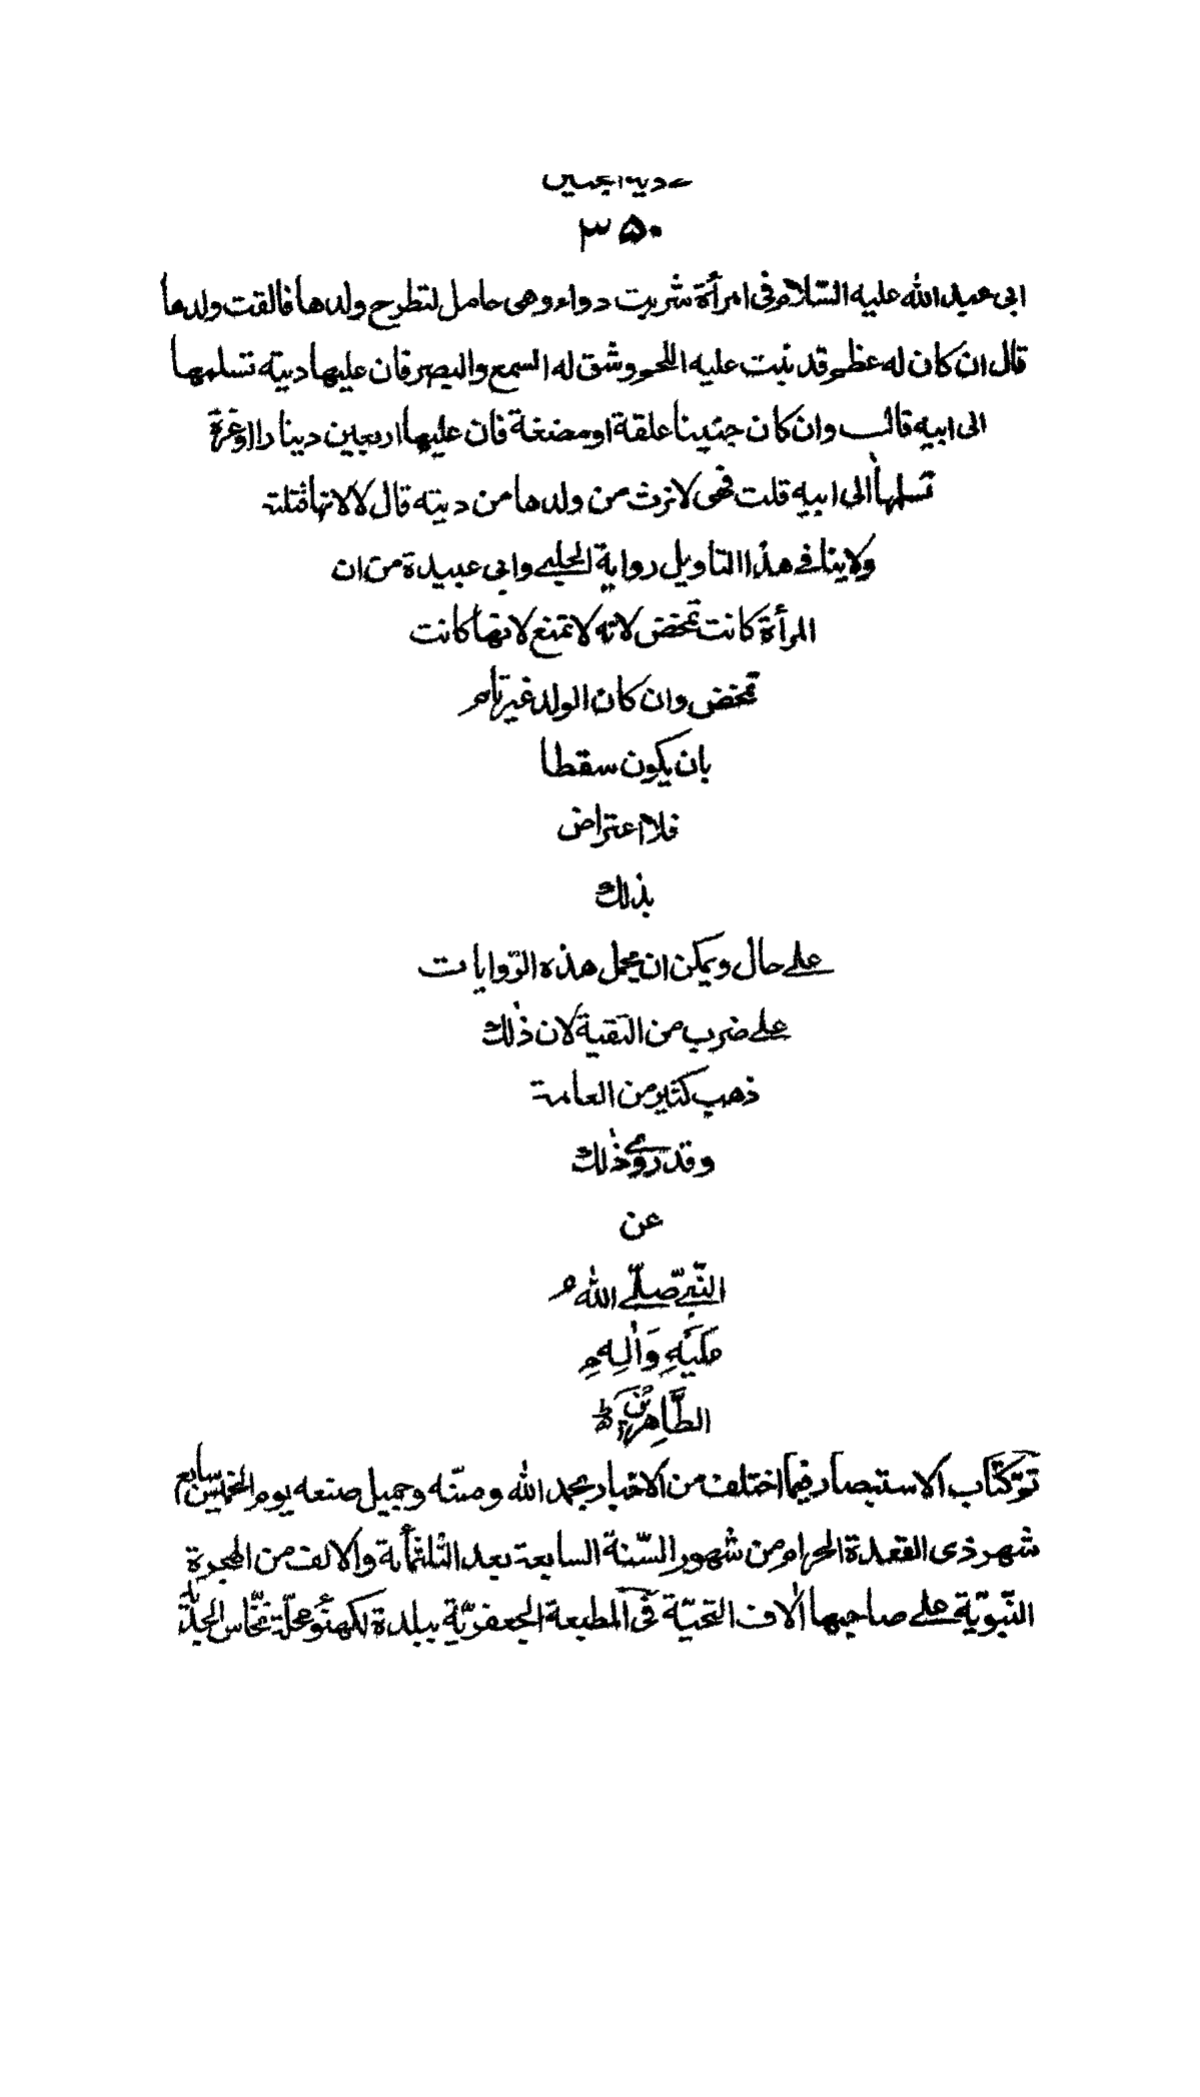 دية الجنين
٣٥٠
ابى عبد الله عليه السّلام فى امرأة شربت دواء وهى حامل لتطرح ولدها فالقت ولدها
قال ان كان له عظم قد نبت عليه اللحم وشق له السمع والبصر فان عليها ديته تسلمها
الى ابيه قال وان كان جنينا علقة او مضغة فان عليها اربعين دينارا او غرة
تسلمها الى ابيه قلت فهى لا ترث من ولدها من ديته قال لا لانها قتلته
ولا ينافى هذا التاويل رواية الحلبى وابى عبيدة من ان
المرأة كانت تمخض لانه لا تمنع لانها كانت
تمخض وان كان الولد غير تام
بان يكون سقطا
فلا اعتراض
بذلك
على حال ويمكن ان يحمل هذه الرّوايات
على ضرب من التقية لان ذلك
ذهب كثير من العامة
وقد روى ذلك
عن
النّبىّ صلّى الله
عَلَيْهِ وَاٰلِهِ
الطَّاهِرِيْنَ
تمّ كتاب الاستبصار فيما اختلف من الاخبار بحمد الله ومنّه وجميل صنعه يوم الخميس سابع
شهر ذى القعدة الحرام من شهور السّنة السابعة بعد الثلثمأية والالف من الهجرة
النّبويّة على صاحبها اٰلاف التحيّة فى المطبعة الجعفريّة ببلدة لكهنؤ محلّة نخّاس الجديد